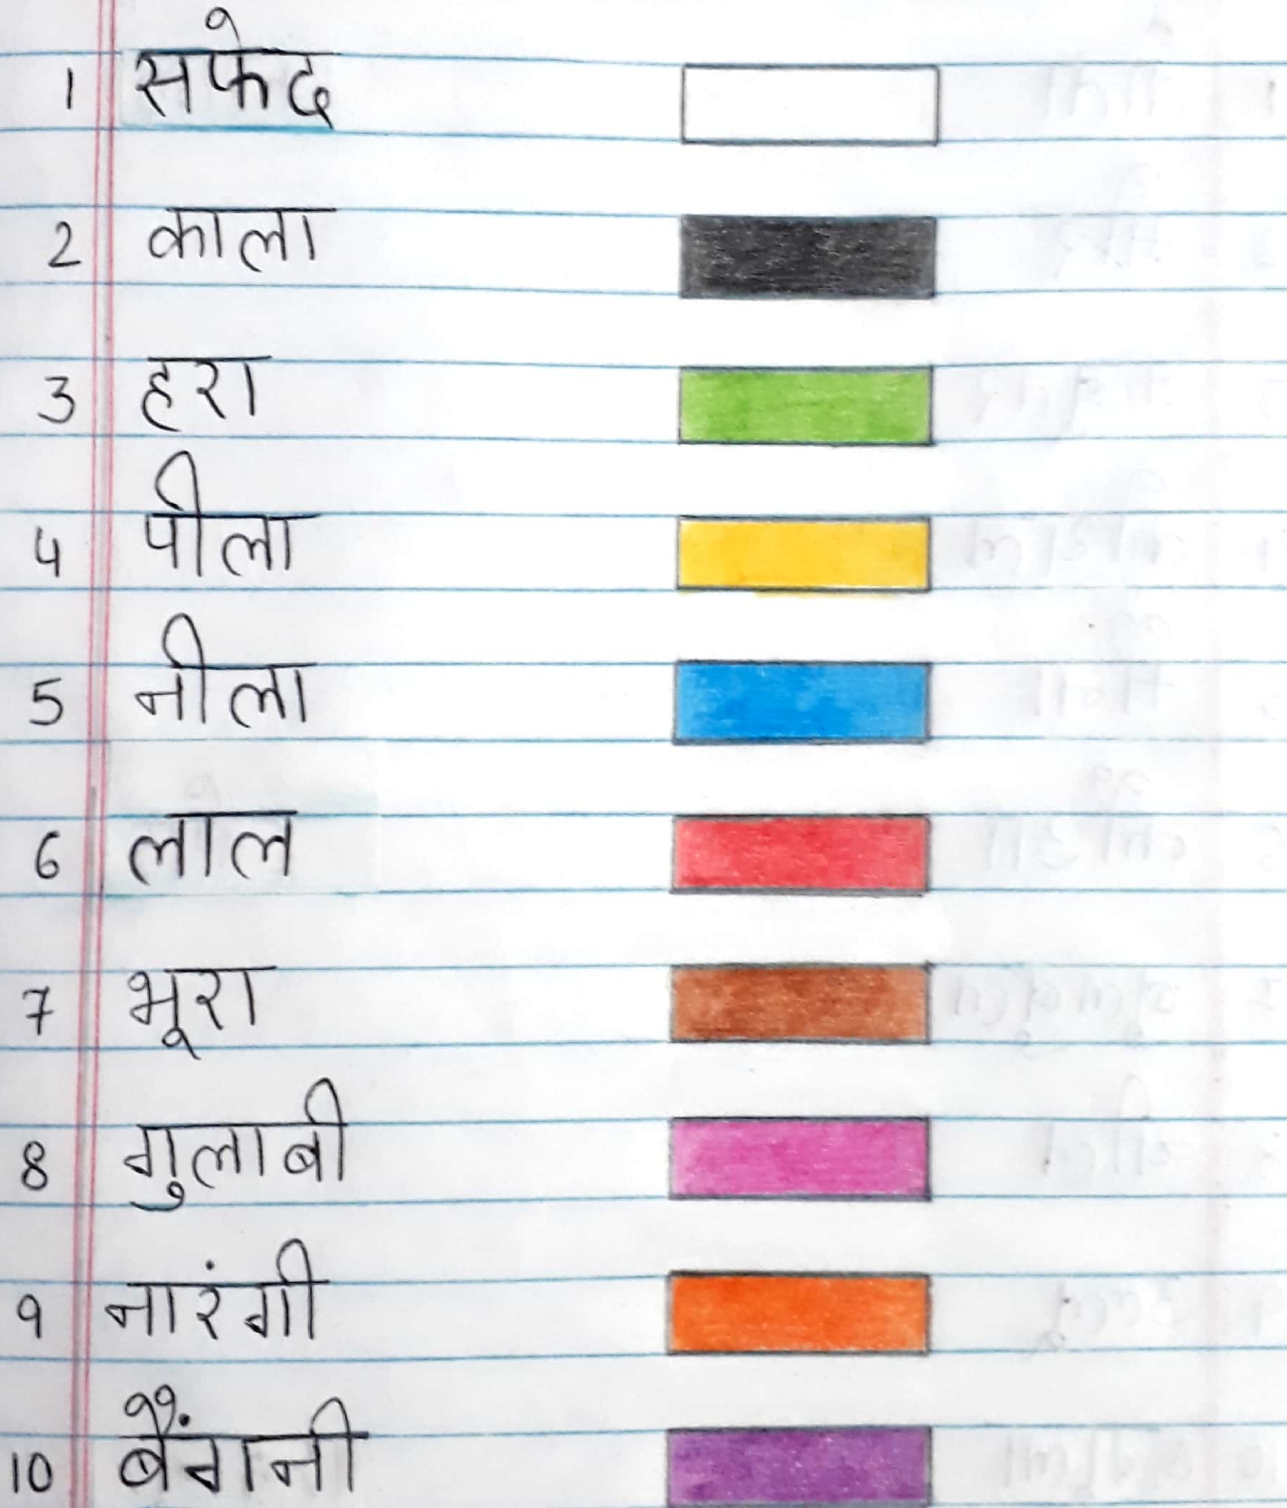 1 सफेद
2 काला
3 हरा
4 पीला
5 नीला
6 लाल
7 भूरा
8 गुलाबी
9 नारंगी
10 बैंगनी